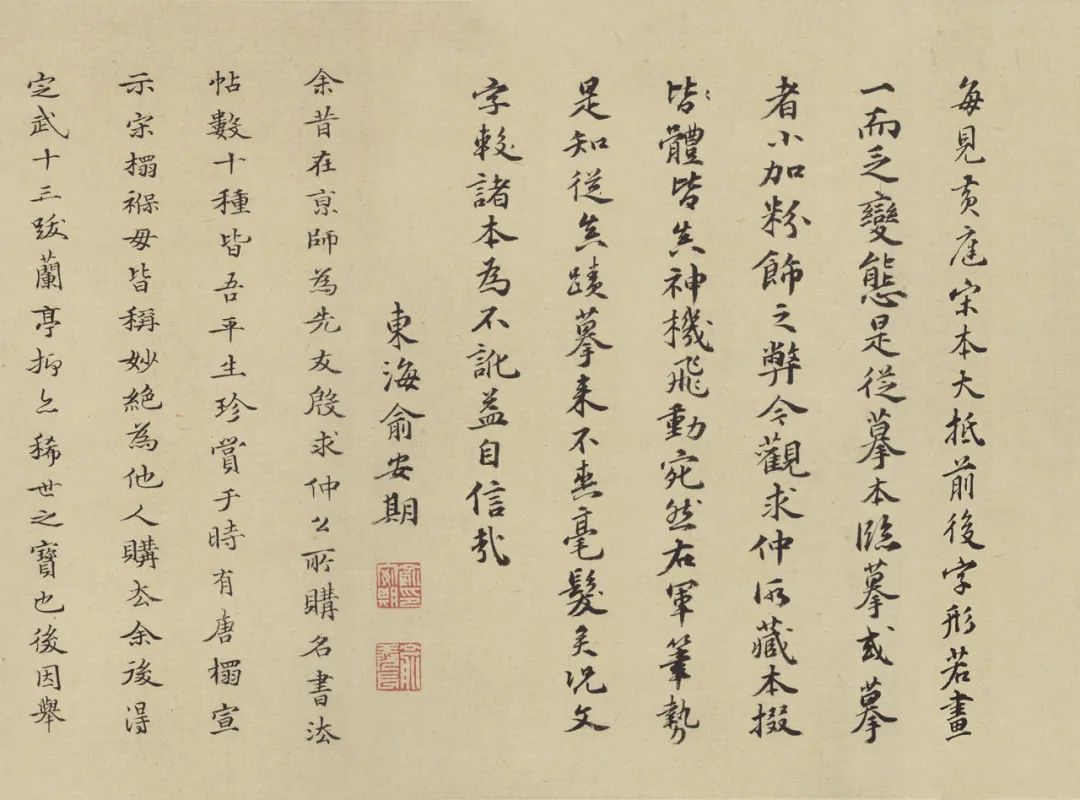 每見黃庭宋本大抵前後字形若畫
一而乏變態是從摹本臨摹或摹
者小加粉飾之弊今觀求仲所藏本掇
皆體皆真神機飛動宛然右軍筆勢
是知從真蹟摹來不爽毫髮矣況文
字較諸本為不訛益自信哉
東海俞安期
余昔在亰師為先友殷求仲公所購名書法
帖數十種皆吾平生珍賞于時有唐搨宣
示宋搨褉毋皆稱妙絕為他人購去余後得
定武十三跋蘭亭抑亦稀世之寶也後因舉